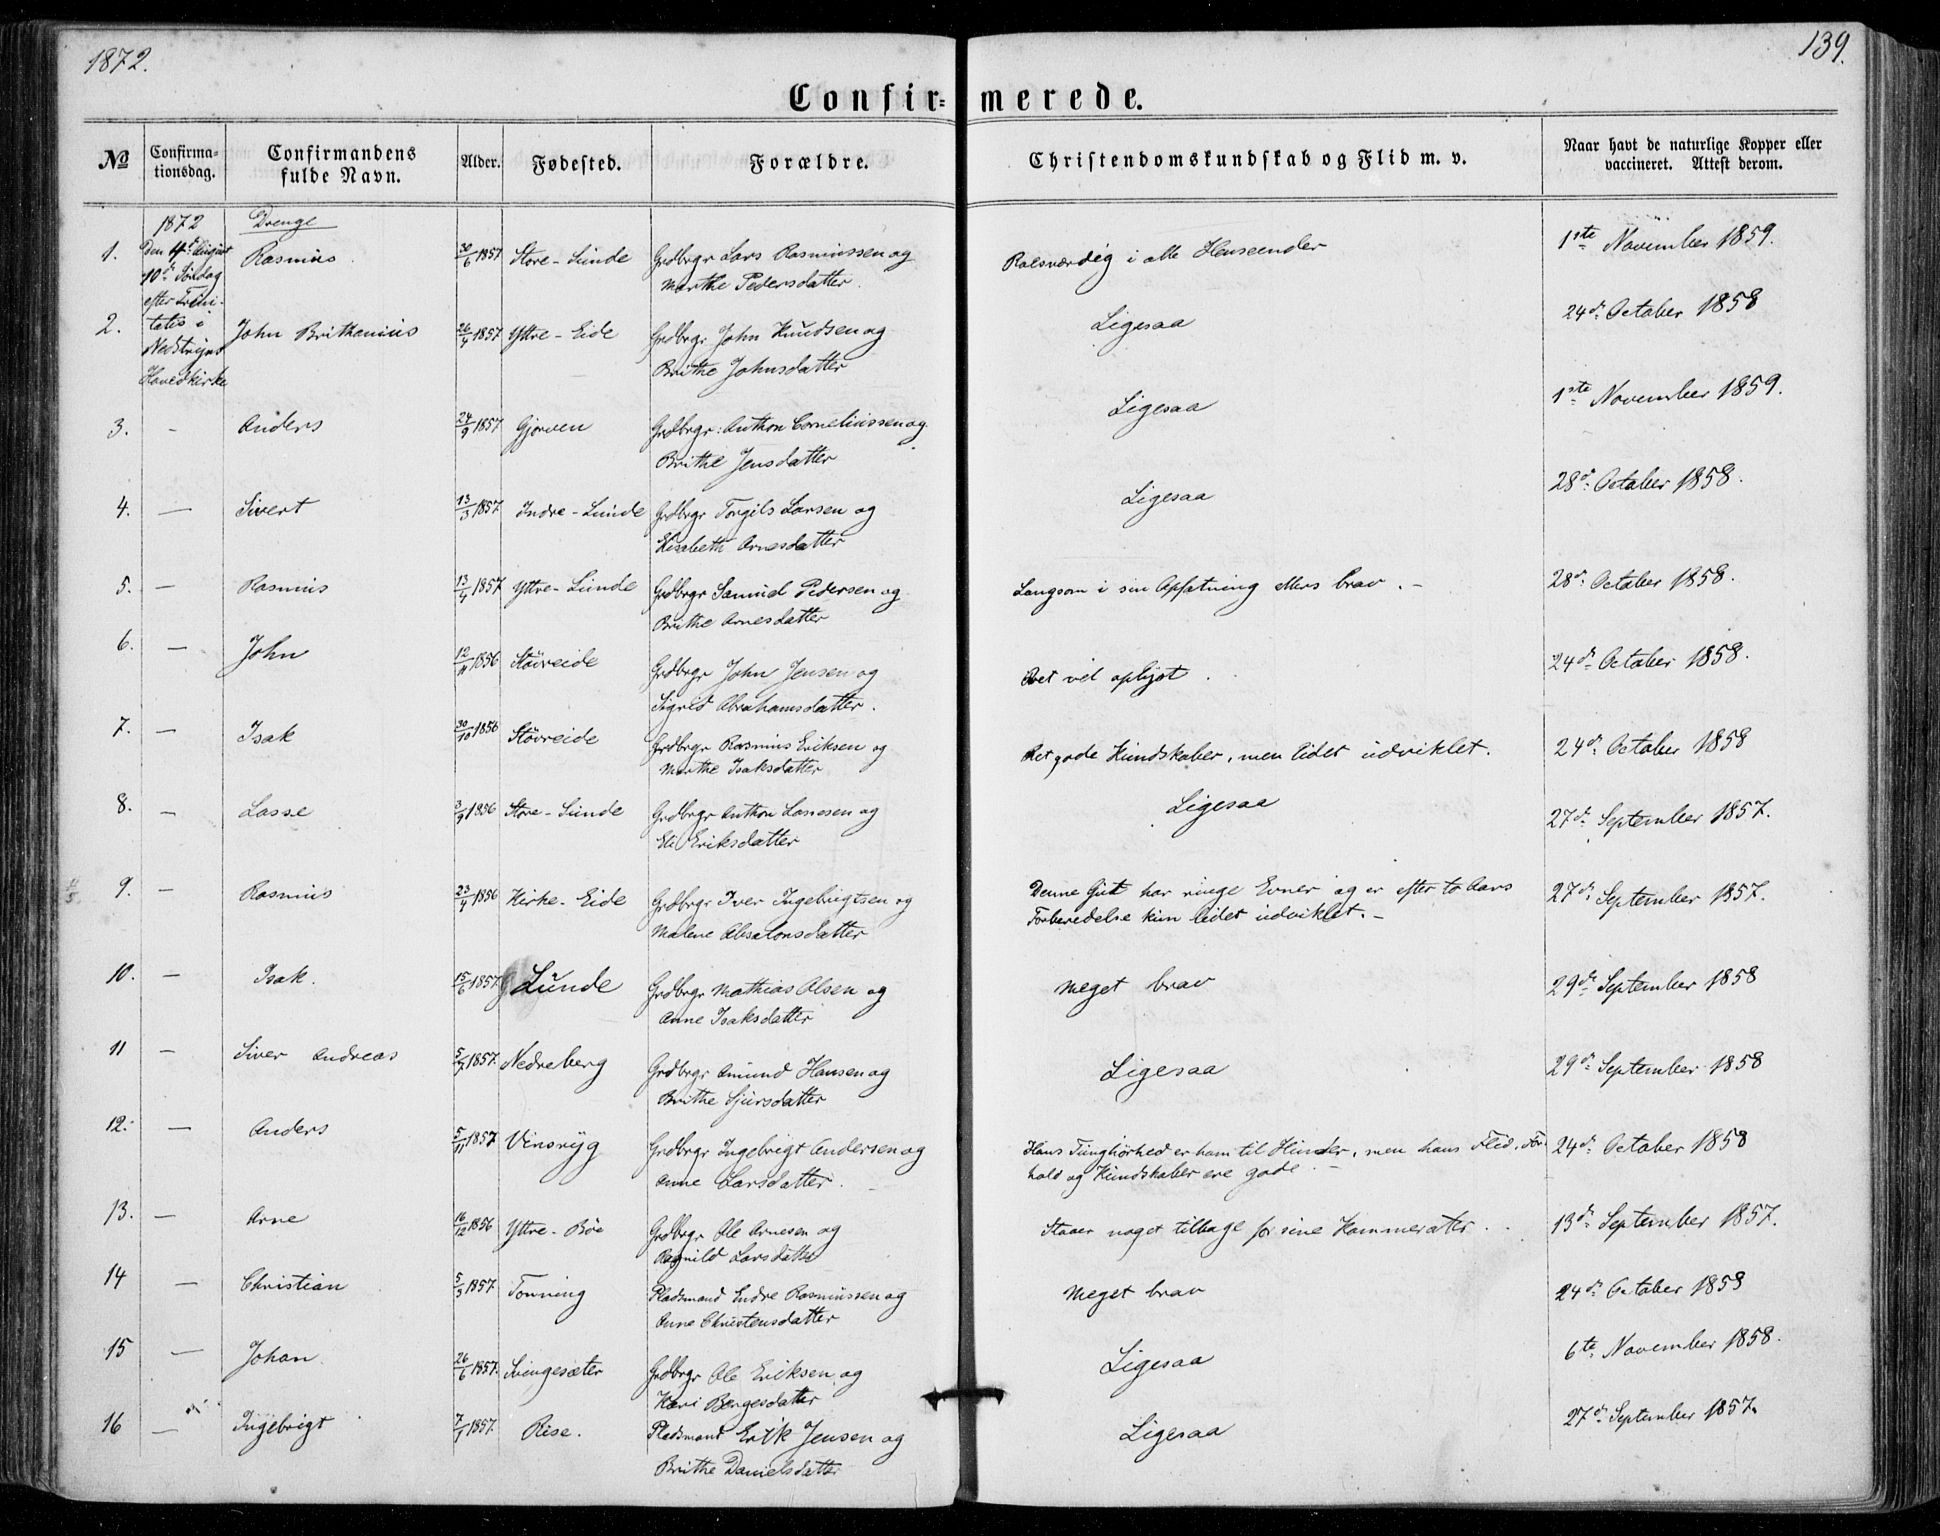 1872.
139.
Confir= merede.
No
Confirma-
tionsdag.
Confirmandens
fulde Navn.
Alder.
Fødested.
Forældre.
Christendomskundskab og Flid m. v.
Naar havt de naturlige Kopper eller
vaccineret. Attest derom.
1872 Drenge
Den 4de August
10de Søndag
efter Trini-
tatis i
Nedstryns
Hovedkirke
1. Rasmus 30/6 1857 Store-Sunde Grdbrgr Lars Rasmussen og
Marthe Pedersdatter.
Rosværdig i alle Henseender 1ste November 1859.
2. John Brithanius 26/4 1857 Yttre-Eide Grdbrgr John Knudsen og
Brithe Johnsdatter
Ligesaa 24de October 1858
3. - Anders 24/9 1857 Gjørven Grdbrgr: Anthon Corneliussen og
Brithe Jensdatter
Ligesaa 1ste November 1859.
4. — Sivert 13/3 1857 Indre-Sunde Grdbrgr Torgils Larsen og
Elisabeth Arnesdatter
Ligesaa 28de October 1858.
5. — Rasmus 13/4 1857 Yttre-Sunde Grdbrgr Samuel Pedersen og
Brithe Arnesdatter
Langsom i sin Opfatning ellers brav. - 28de October 1858.
6. — John 12/11 1856 Støvreide Grdbrgr John Jensen og
Sigrid Abrahamsdatter.
Ret vel oplyst. 24de October 1858.
7. — Isak 30/10 1856 Støvreide Grdbrgr Rasmus Eriksen og
Marthe Isaksdatter
Ret gode Kundskaber, men lidet udviklet. 24de October 1858
8. — Lasse 3/9 1856 Store-Sunde Grdbrgr Anthon Lassesen og
Eli Eriksdatter
Ligesaa 27de September 1857.
9. — Rasmus 23/4 1856 Kirke-Eide Grdbrgr Iver Ingebrigtsen og
Malene Absalonsdatter
Denne Gut har ringe Evner og er efter to Aars
Forberedelse kun lidet udviklet. - 27de September 1857.
10. — Isak. 15/6 1857 Lunde Grdbrgr Mathias Olsen og
Anne Isaksdatter
Meget brav 29de September 1858
11 — Siver Andreas 5/7 1857. Nedreberg Grdbrgr Amund Hansen og
Brithe Sjursdatter
Ligesaa 29de September 1858
12. — Anders 5/11 1857 Vinsryg Grdbrgr Ingebrigt Andersen og
Anne Larsdatter.
Hans Tunghørhed er ham til Hinder, men hans Flid, For-
hold og Kundskaber ere gode - 24de October 1858
13. — Arne 16/12 1856 Yttre-Bøe Grdbrgr Ole Arnesen og
Ragnild Larsdatter
Staaer noget tilbage for sine Kammerater. 13de September 1857.
14 — Christian 5/3 1857. Tonning Pladsmand Endre Rasmussen og
Anne Christensdatter
Meget brav 24de October 1858
15 — Johan. 26/6 1857. Svingesæter Grdbrgr Ole Eriksen og
Kari Børgesdatter
Ligesaa 6te November 1858.
16 — Ingebrigt 7/1 1857. Rise. Pladsmand Erik Jensen og
Brithe Danielsdatter
Ligesaa 27de September 1857.